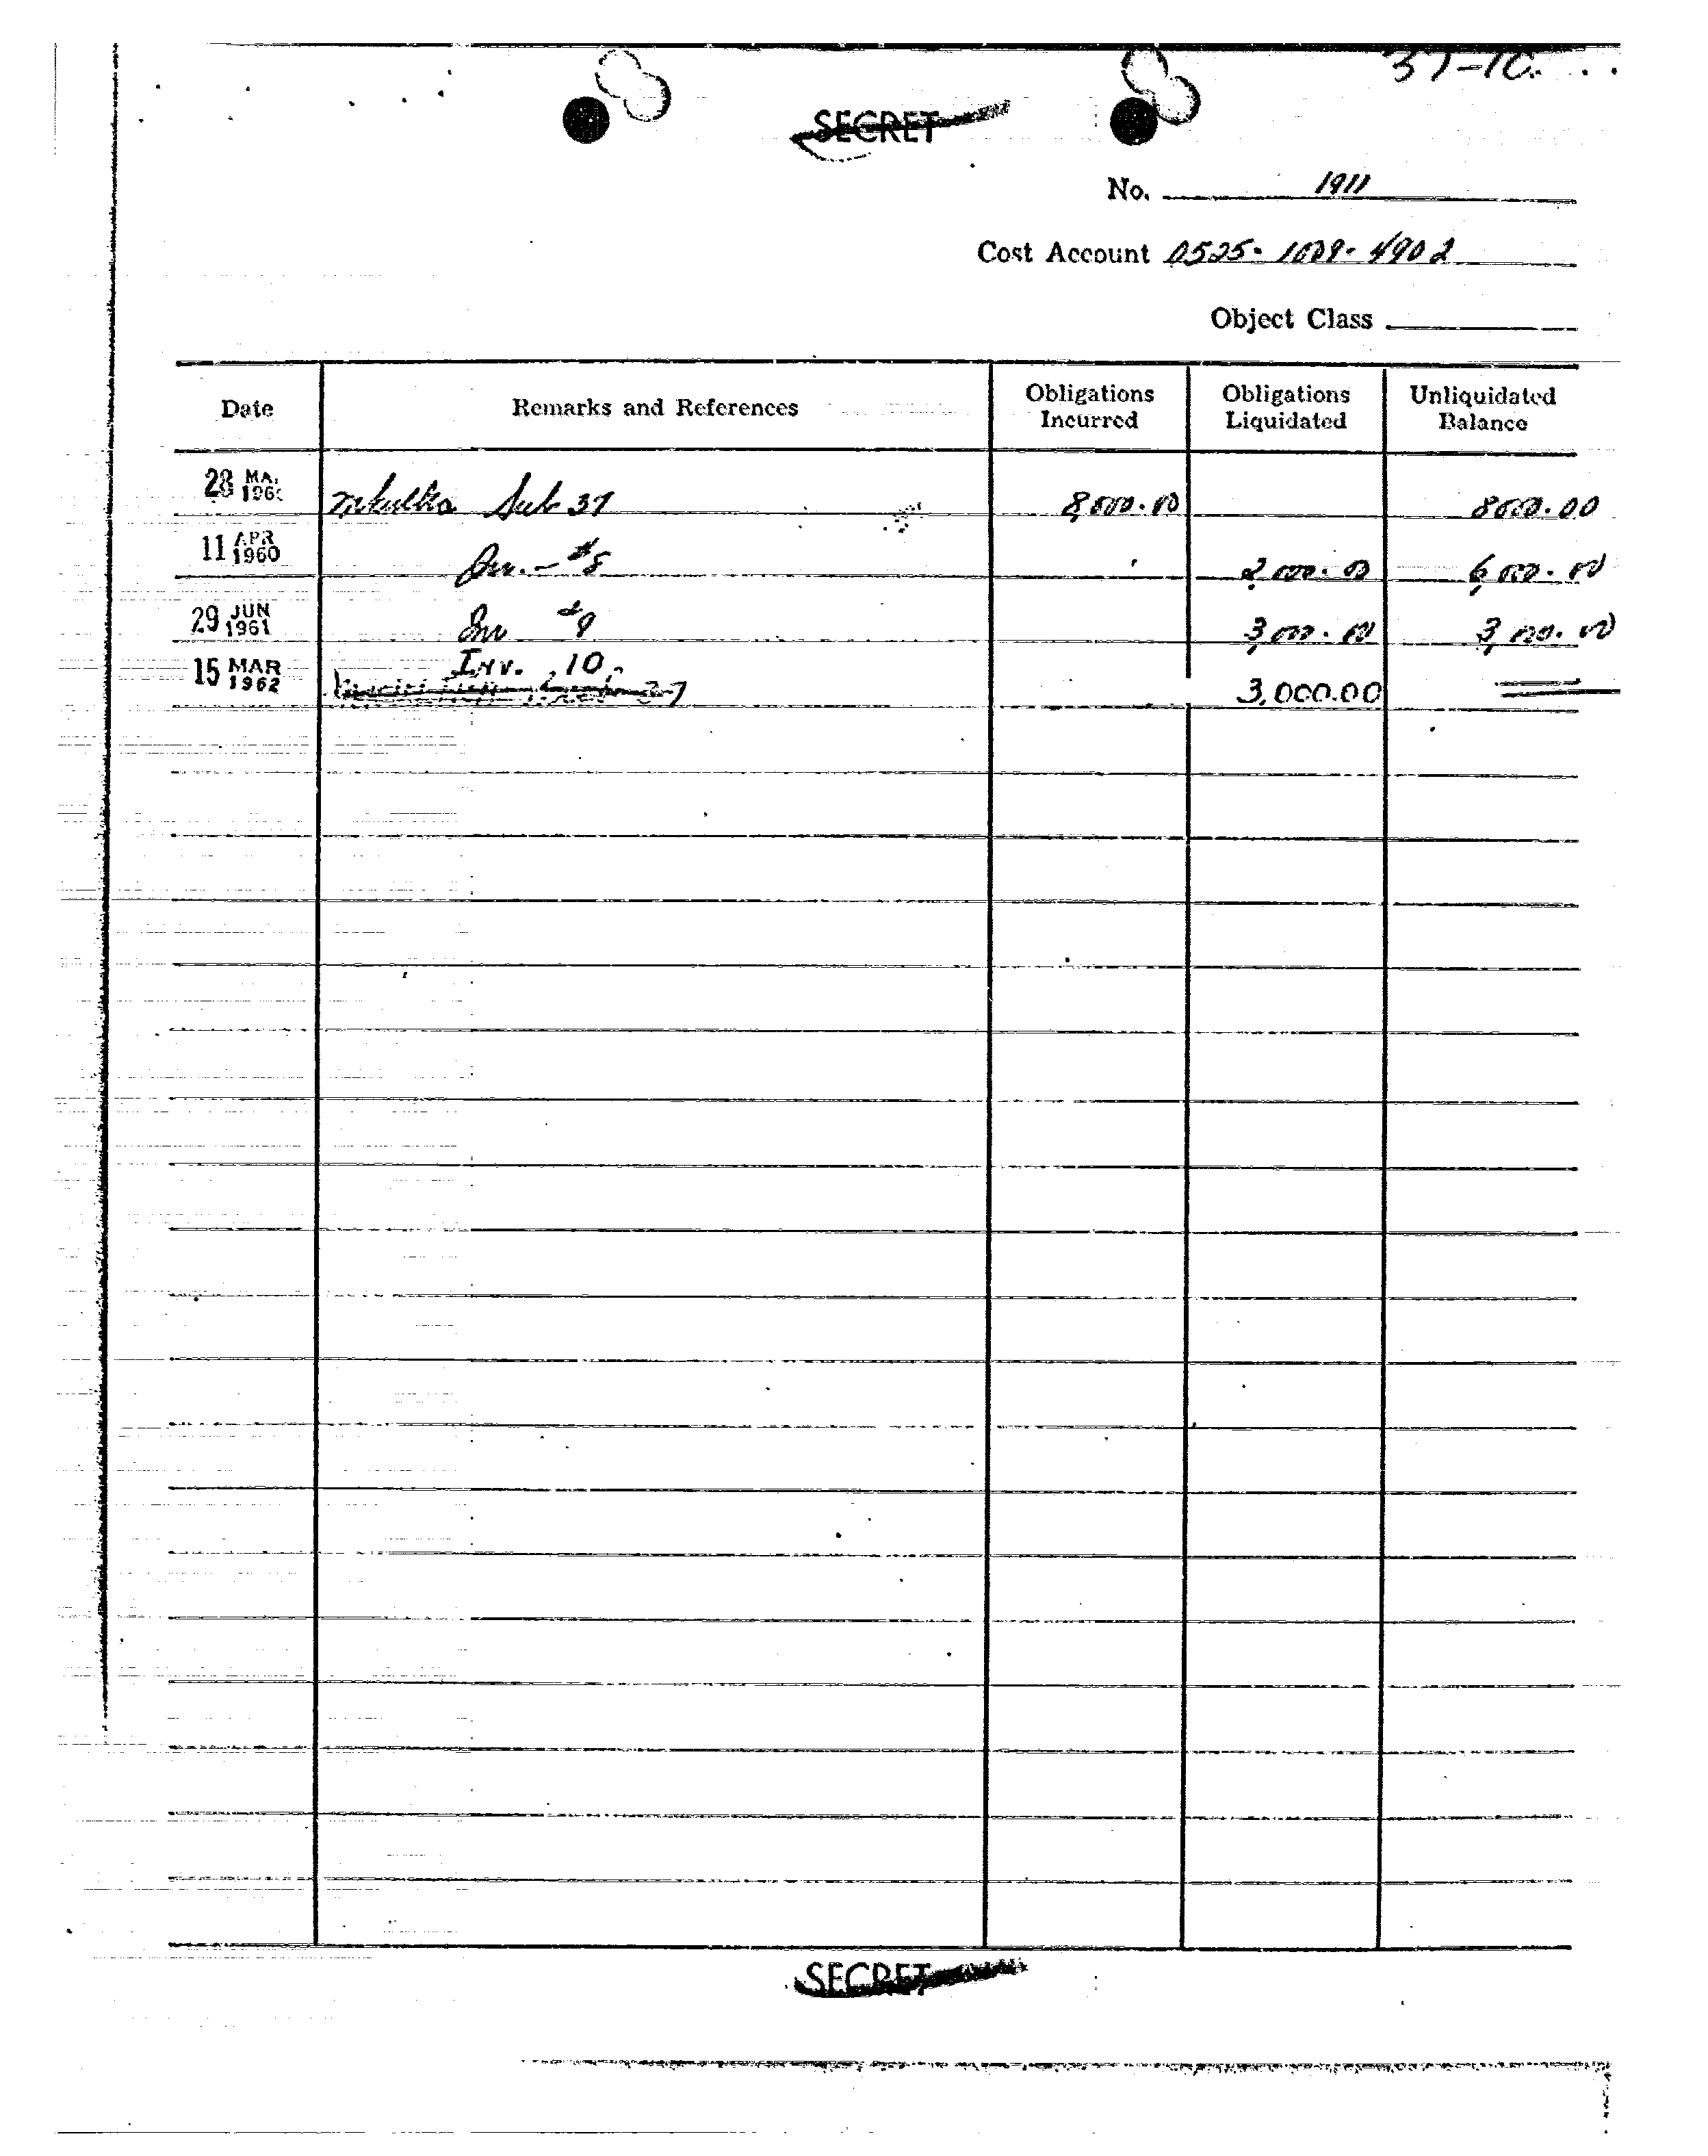 37-10
SECRET
No. 1911
Cost Account 0525-1009-4902
Object Class
Date Remarks and References Obligations Incurred Obligations Liquidated Unliquidated Balance
28 MA. 196 mkultra Sub 37 8,000.00 8000.00
11 APR 1960 Inv. - #8 2,000.00 6,000.00
29 JUN 1961 Inv #9 3,000.00 3,000.00
15 MAR 1962 Inv. 10
37 3,000.00
SECRET